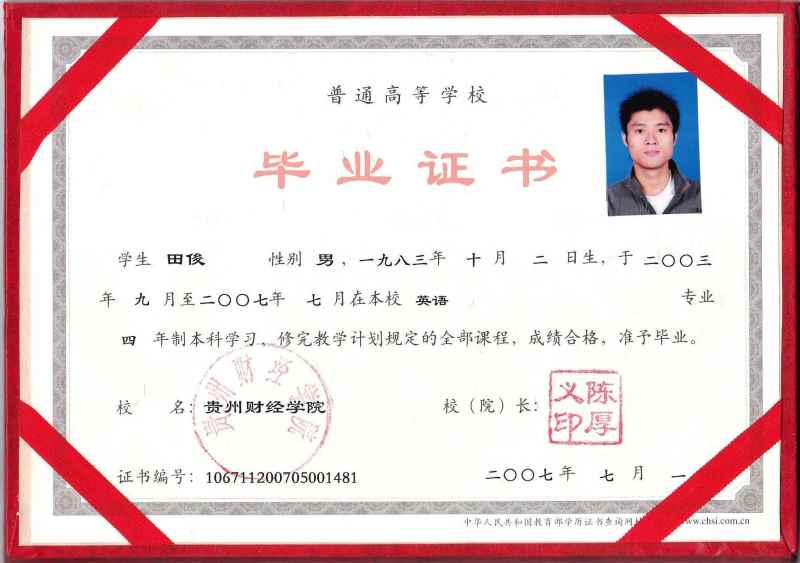 普通高等学校
毕业证书
学生 田俊 性别 男，一九八三年 十 月 二 日生，于二〇〇三
年 九 月至二〇〇七年 七 月在本校 英语 专业
四 年制本科学习，修完教学计划规定的全部课程，成绩合格，准予毕业。
贵州财经学院
校 名：贵州财经学院 校（院）长：
陈厚义印
证书编号：106711200705001481 二〇〇七年 七 月 一
中华人民共和国教育部学历证书查询网 www.chsi.com.cn